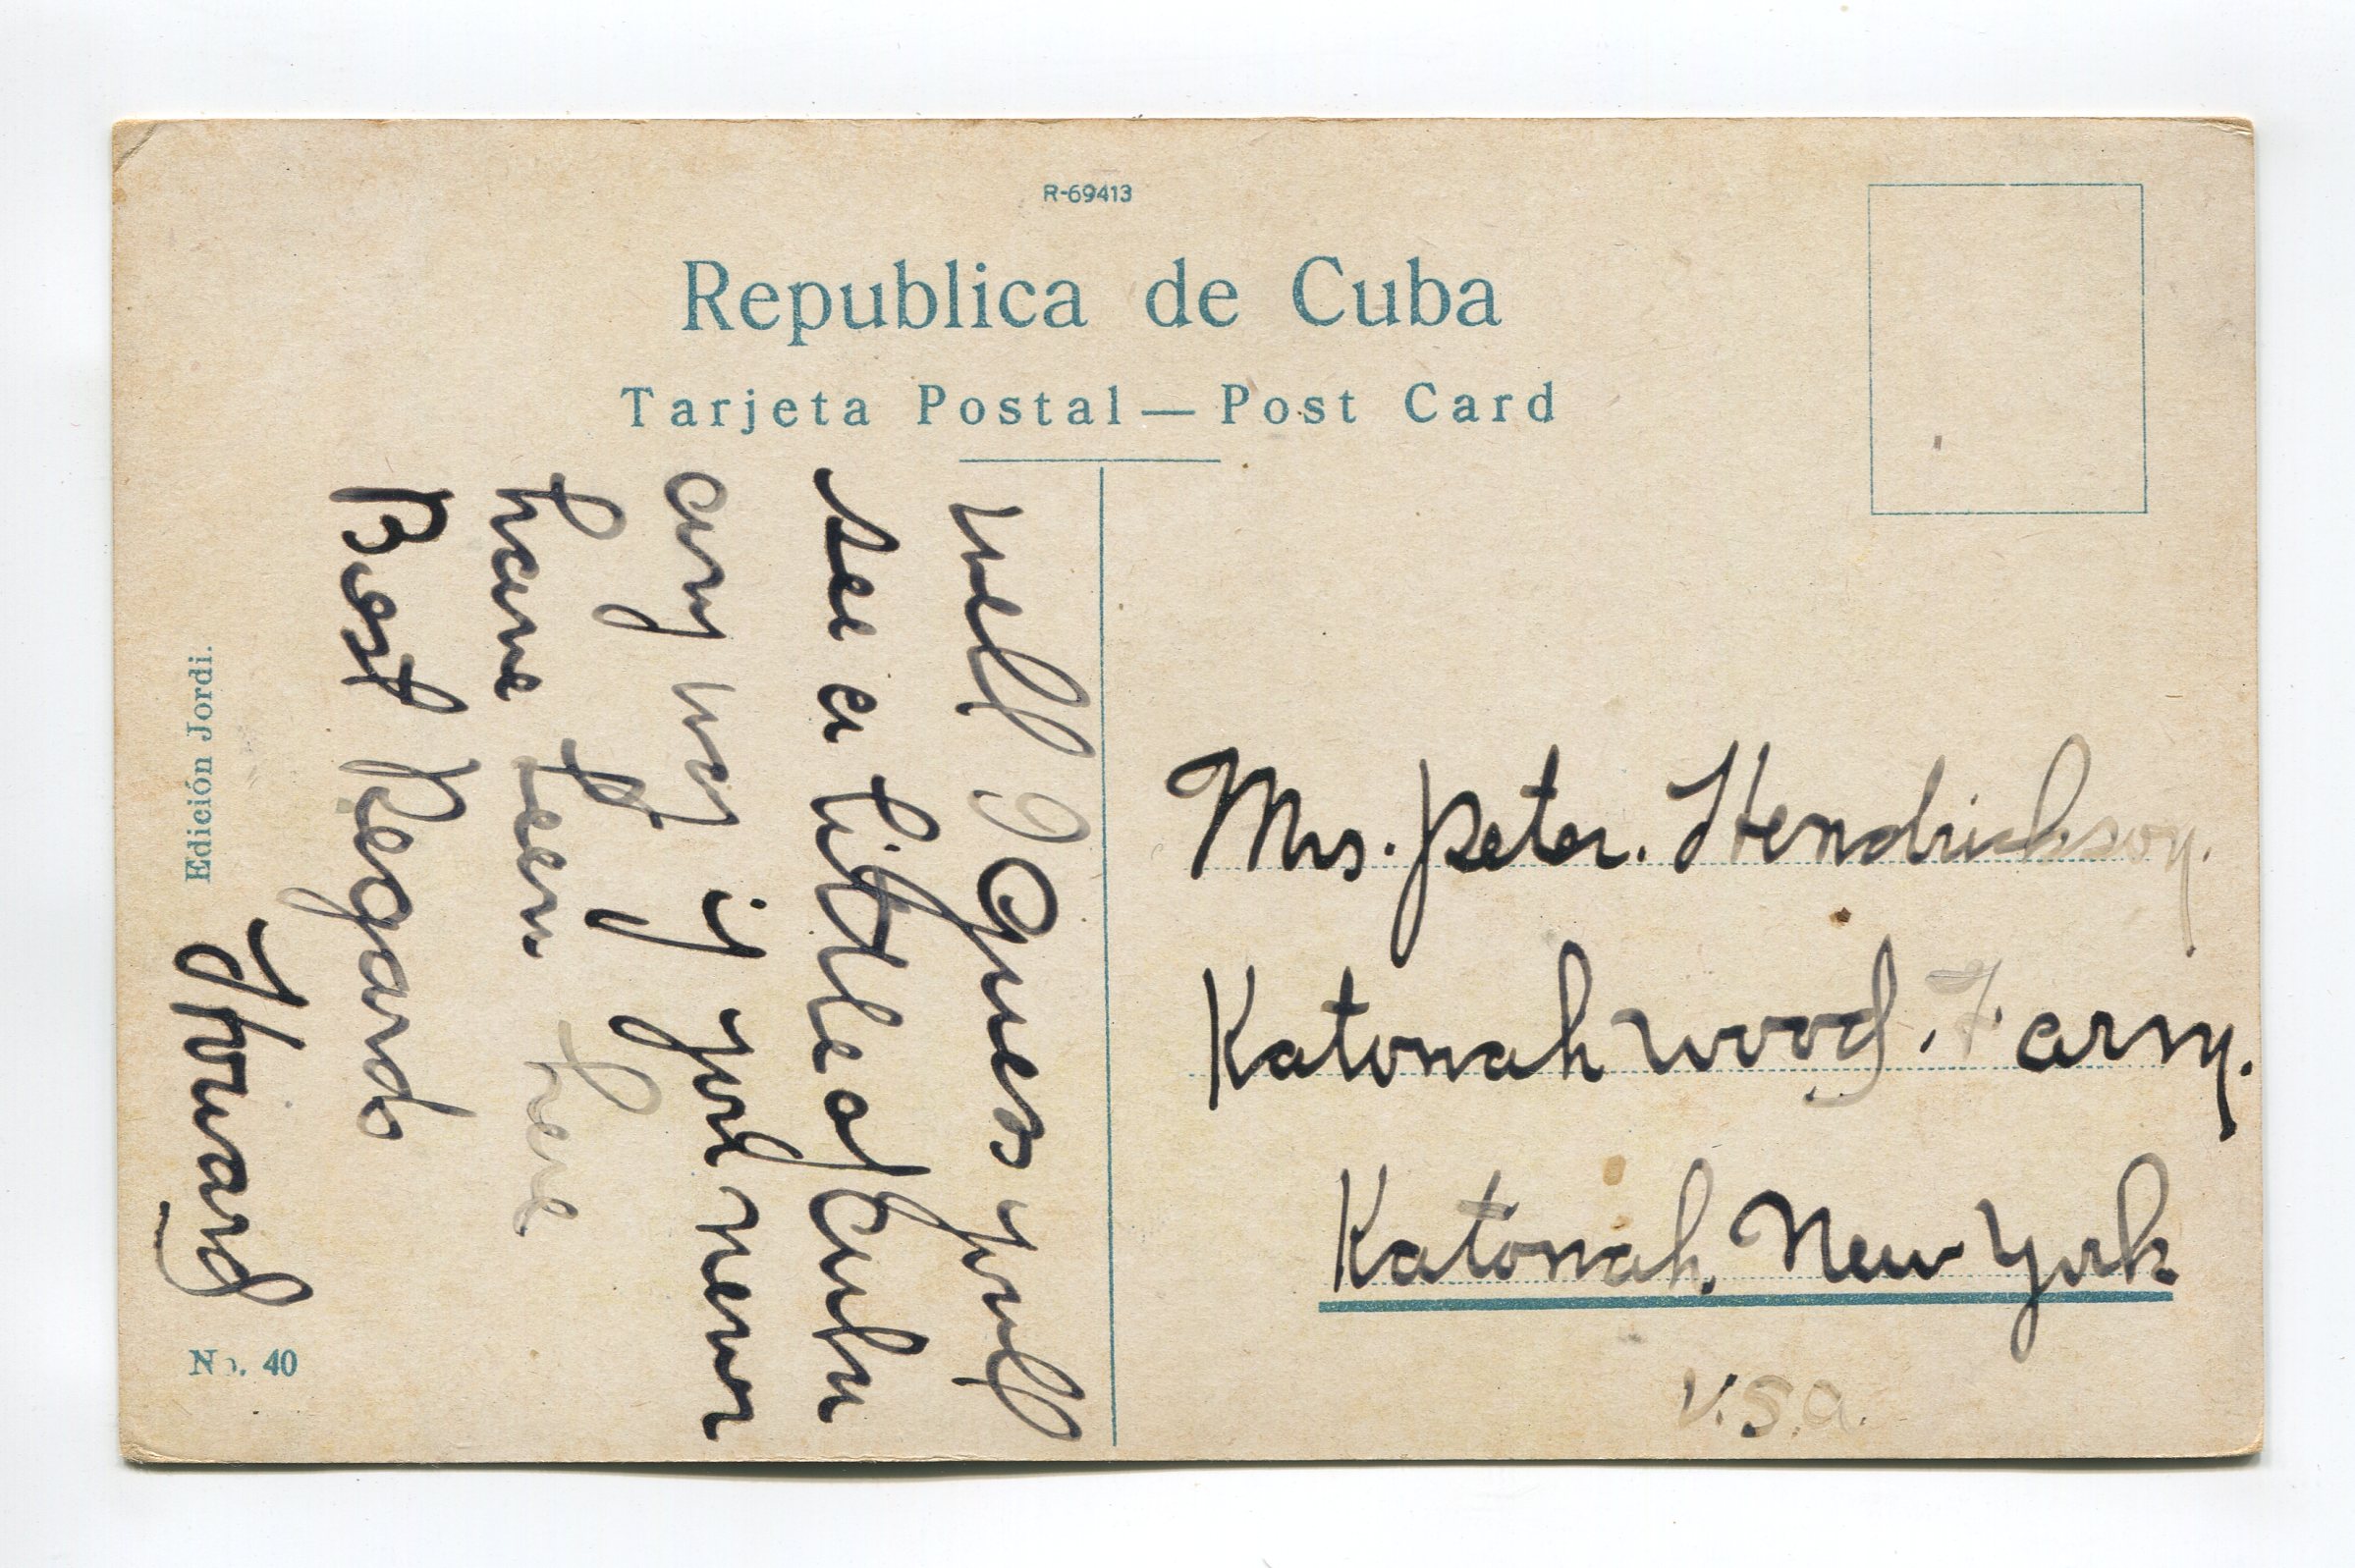 R-69413
Republica de Cuba
Tarjeta Postal — Post Card
well I Guess you'll
see a little of Cuba
any way if you never
have been here
Best Regards
Howard
Edición Jordi.
No. 40
Mrs. Peter. Hendrickson.
Katonah wood. Farm.
Katonah. New York
U.S.a.